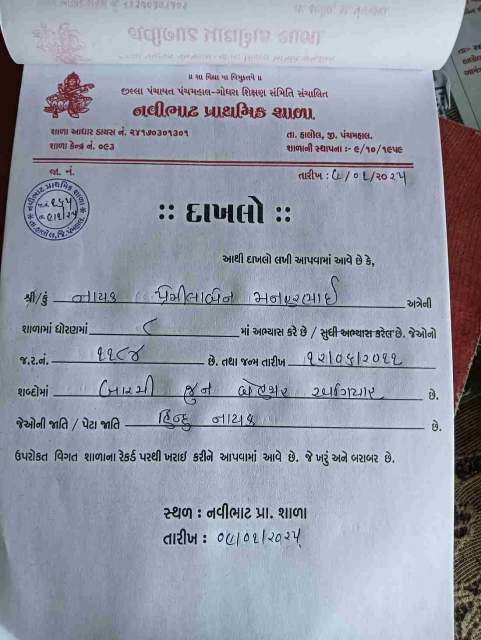 ॥ સા વિદ્યા યા વિમુક્તયે ॥
જીલ્લા પંચાયત પંચમહાલ-ગોધરા શિક્ષણ સમિતિ સંચાલિત
નવીભાટ પ્રાથમિક શાળા
શાળા આધાર ડાયસ નં. ૨૪૧૭૦૩૦૧૩૦૧
તા. હાલોલ, જી. પંચમહાલ.
શાળા કેન્દ્ર નં. ૦૯૩
શાળાની સ્થાપના :- ૯/૧૦/૧૯૫૯
જા. નં.
તારીખ : ૯/૦૧/૨૦૨૫
:: દાખલો ::
આથી દાખલો લખી આપવામાં આવે છે કે,
શ્રી/કું નાયક પ્રેમીલાબેન મનહરભાઈ અત્રેની
શાળામાં ધોરણમાં ૮ માં અભ્યાસ કરે છે / સુધી અભ્યાસ કરેલ છે. જેઓનો
જ.ર.નં. ૧૧૮૪ છે. તથા જન્મ તારીખ ૧૨/૦૬/૨૦૧૧
શબ્દોમાં બારમી જુન બે હજાર અગિયાર છે.
જેઓની જાતિ / પેટા જાતિ હિન્દુ નાયક છે.
ઉપરોકત વિગત શાળાના રેકર્ડ પરથી ખરાઈ કરીને આપવામાં આવે છે. જે ખરું અને બરાબર છે.
સ્થળ : નવીભાટ પ્રા. શાળા
તારીખ : ૦૯/૦૧/૨૦૨૫